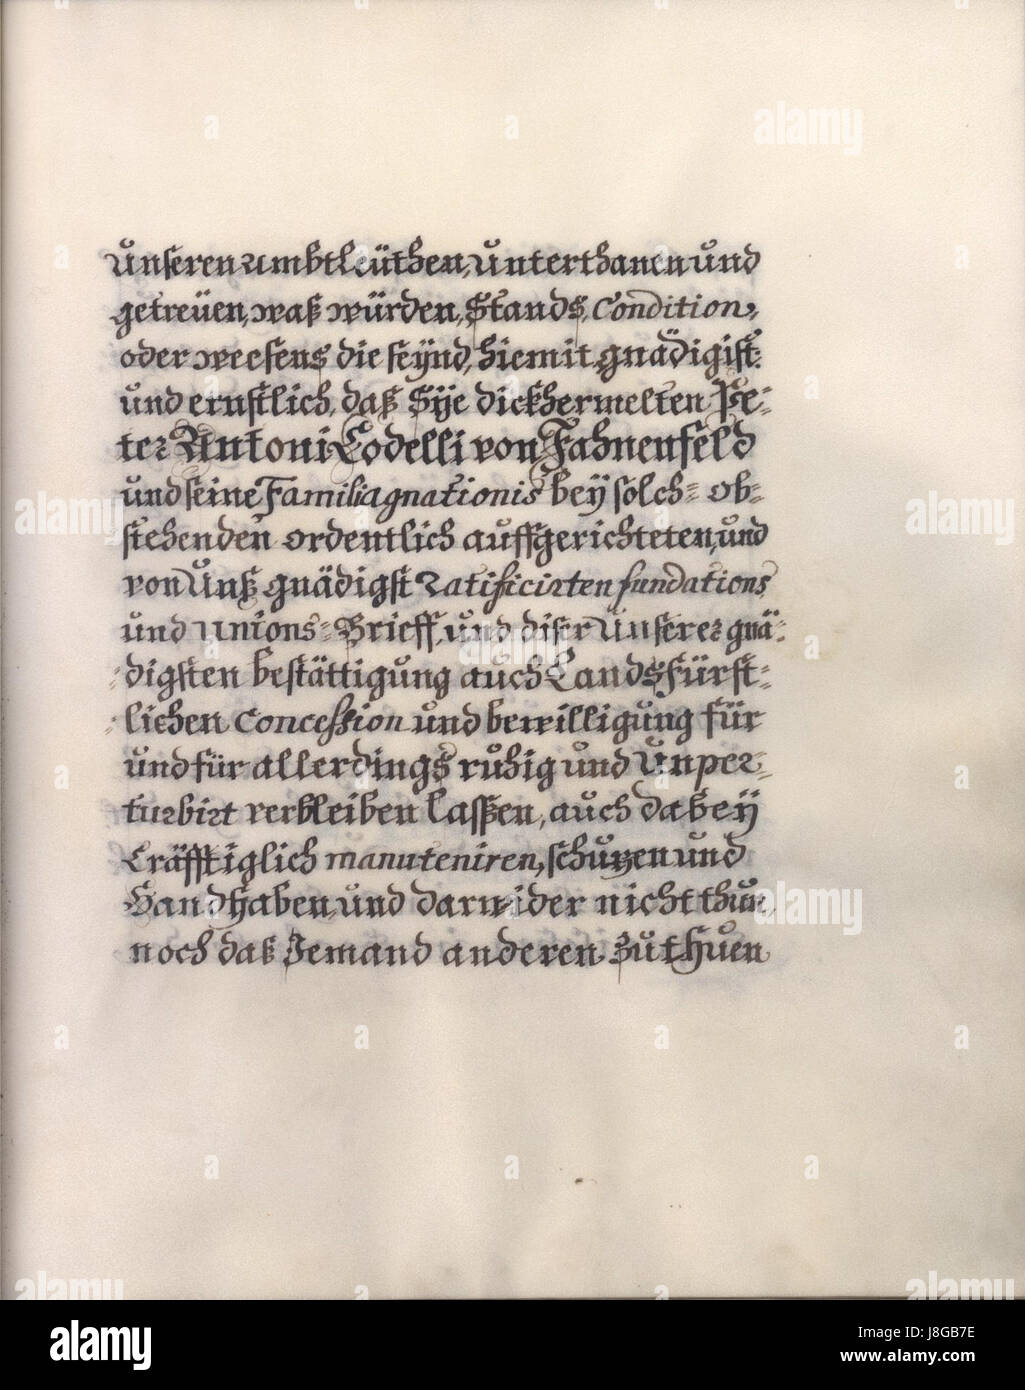 Unseren Ambtleüthen, Unterthanen und
getreüen, waß würden, Stands, Condition,
oder weesens die seÿnd, hiemit gnädigist:
und ernstlich, daß Sÿe dickhermelten Pe=
ter Antoni Codelli von Fahnenfeld
und seine Familiagnationis beÿ solch= ob=
stehenden ordentlich auffgerichteten, und
von Unß gnädigst Ratificirten fundations
und Unions= Brieff, und diser Unserer gnä=
=digsten bestättigung auch Landsfürst=
=lichen Concession und bewilligung für
und für allerdings ruhig und Unper=
turbirt verbleiben lasßen, auch dabeÿ
Cräfftiglich manuteniren, schuzen und
Handhaben, und darwider nicht thun,
noch daß Jemand anderen Zuthuen
alamy
alamy
alamy
alamy
alamy
alamy
alamy
alamy
Image ID: J8GB7E
www.alamy.com